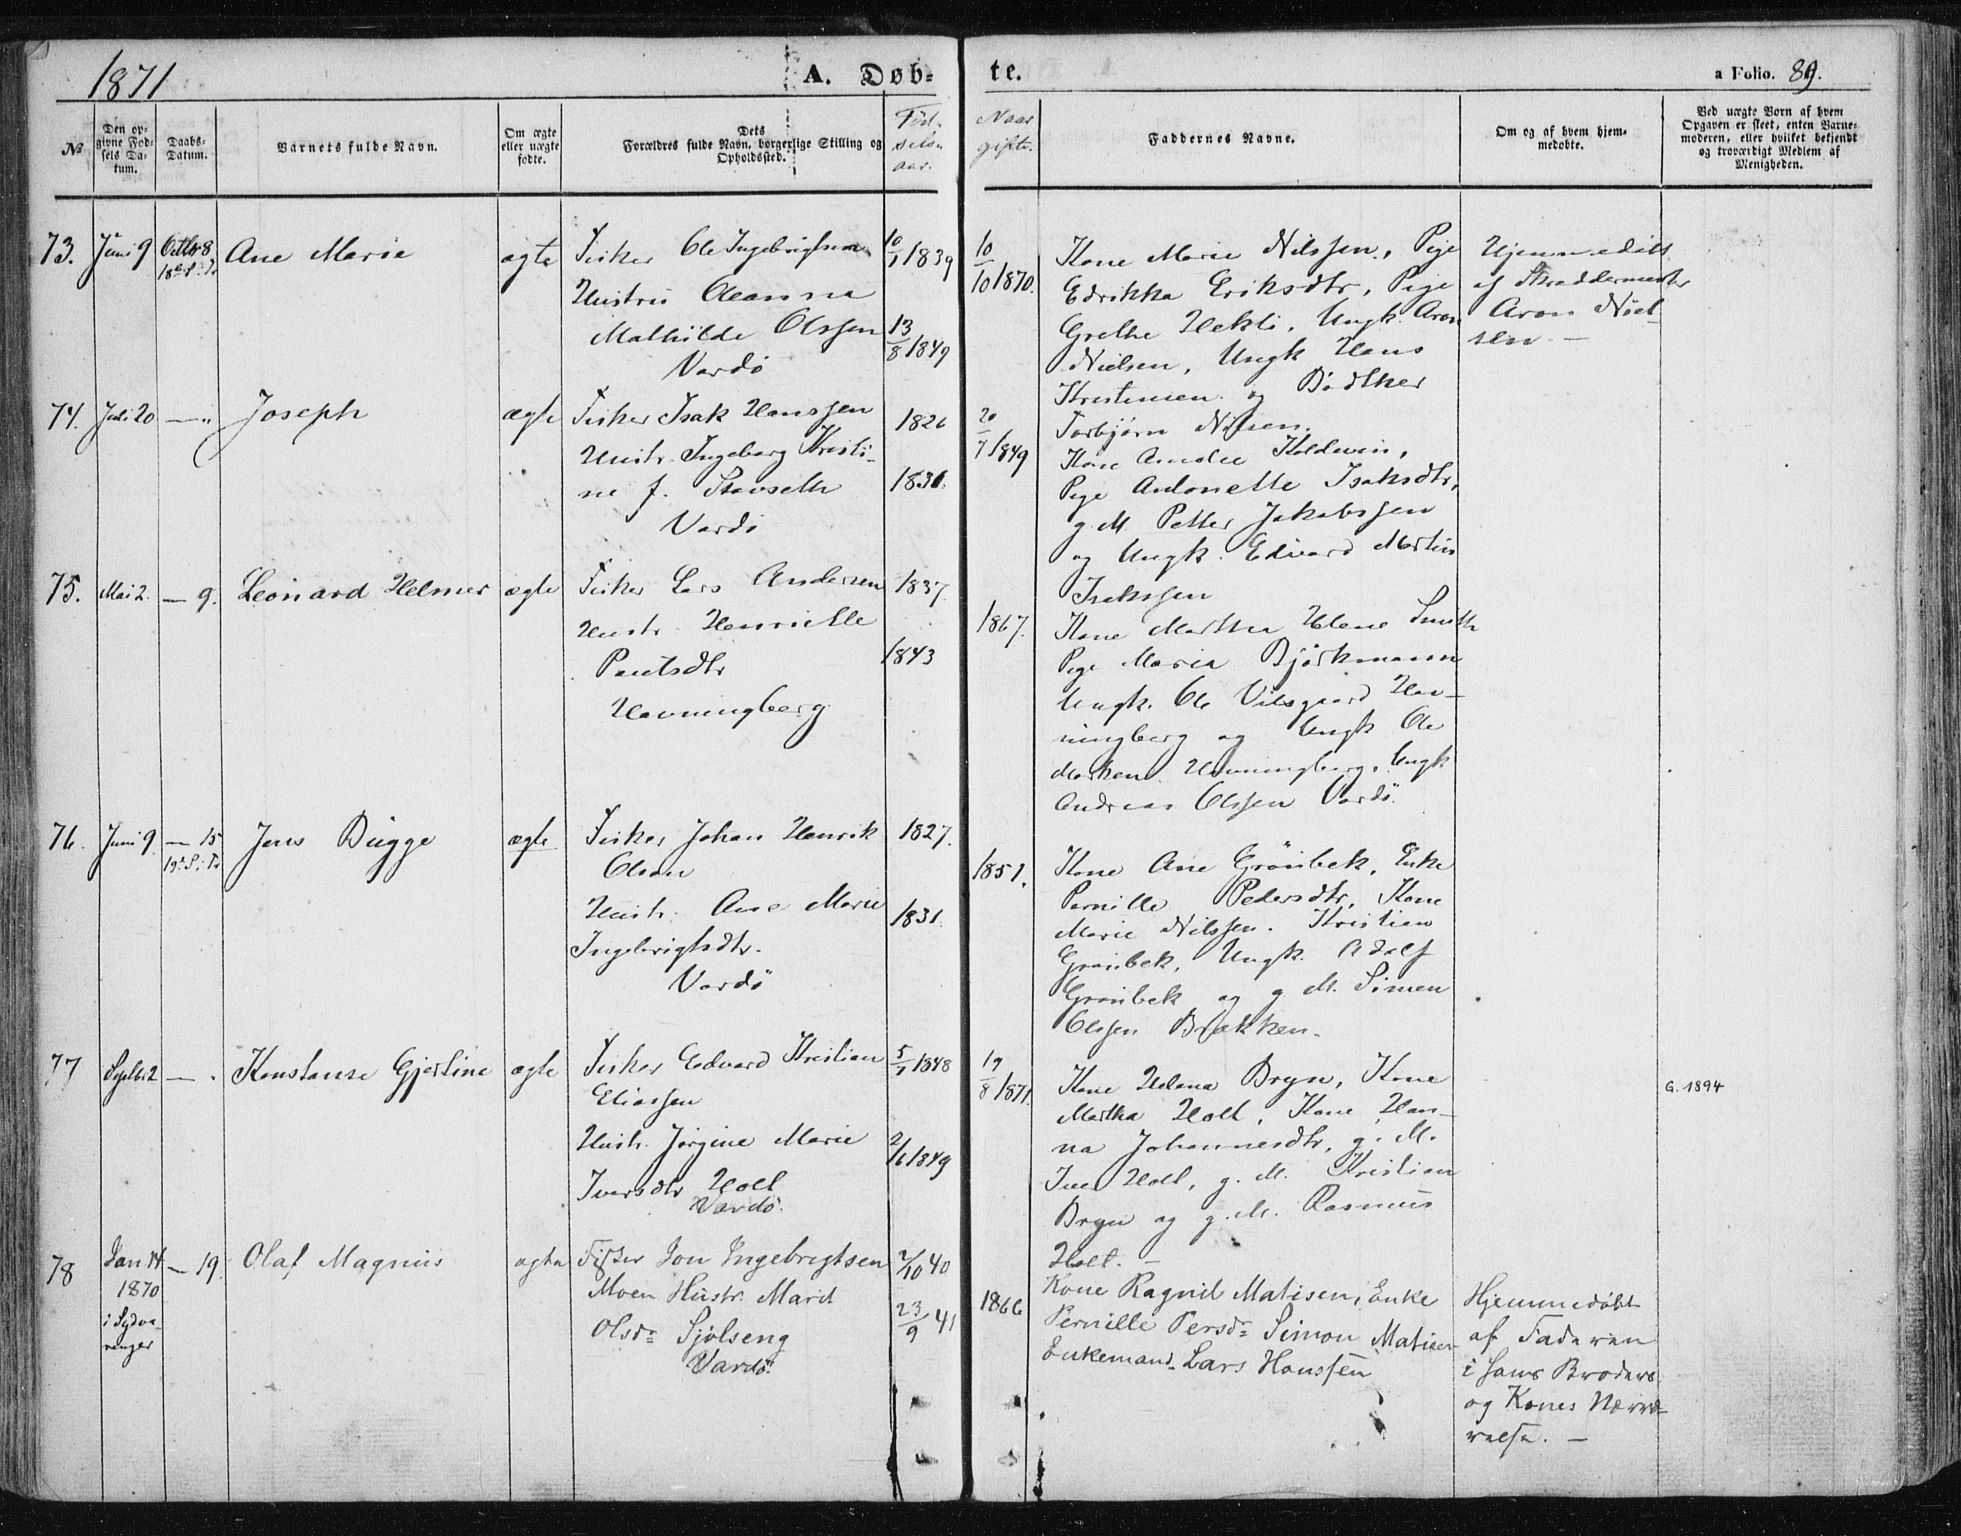 1871
A. Døb-
te.
a Folio. 89.
№
Den op-
givne Fød-
sels Da-
tum.
Daabs-
Datum.
Barnets fulde Navn.
Om ægte
eller uægte
fødte.
Dets
Forældres fulde Navn, borgerlige Stilling og
Opholdssted.
Fød-
sels-
aar.
Naar
gifte.
Faddernes Navne.
Om og af hvem hjem-
medøbte.
Ved uægte Børn af hvem
Opgaven er skeet, enten Barne-
moderen, eller hvilket bekjendt
og troværdigt Medlem af
Menigheden.
73. Juni 9 Octbr 8
18de S. i Tr
Ane Marie
ægte
Fisker Ole Ingebrigtsen
Hustru Oleanna
Mathilde Olssen
Vardö
10/1 1839
13/8 1849
10/10 1870.
Kone Marie Nilssen, Pige
Edrikka Eriksdtr, Pige
Grethe Hekli, Ungk. Aron
Nielsen, Ungk Hans
Kristensen og Bödtker
Torbjørn Nilsen.
Hjemmedöbt
af Skreddermester
Aron Niel-
sen –
74. Juli 20 — „
Joseph
ægte
Fisker Isak Hanssen
Hustr. Ingeborg Kristi-
ne f. Stavseth
Vardö
1826
1831.
20/7 1849
Kone Amalie Koldevin,
Pige Antonette Isaksdtr,
g. M Petter Jakobssen
og Ungk. Edvard Martin
Isakssen
75. Mai 2. — 9.
Leonard Helmer
ægte
Fisker Lars Andersen
Hustr. Henriette
Paulsdtr
Havningberg
1837.
1843
1867.
Kone Martha Helene Smith
Pige Maria Björkmann
Ungk. Ole Vilsgaard Hav-
ningberg og Ungk Ole
Havningberg, Ungk
Andreas Olssen Vardö.
76. Juni 9. — 15
19de S. i Tr
Jens Bugge
ægte
Fisker Johan Henrik
Olsen
Hustr. Ane Marie
Ingebrigtsdtr.
Vardö
1827.
1831.
1851.
Kone Ane Grönbek, Enke
Pernille Pedersdtr, Kone
Marie Nilssen. Kristian
Grönbek, Ungk. Adolf
Grönbek og g M. Simen
Olssen Brækken.
77 Septbr 2 — .
Konstanse Gjertine
ægte
Fisker Edvard Kristian
Eliassen
Hustr. Jörgine Marie
Iversdtr Holt
Vardö.
5/1 1848
2/6 1849
19/8 1871.
Kone Helena Bryn, Kone
Martha Holt, Kone Han-
na Johannesdtr, g. M.
Iver Holt, g. M. Kristian
Bryn og g. M. Rasmus
Holt. –
G. 1894
78
Jan 14
1870
i Sydva-
ranger
— 19.
Olaf Magnus
ægte
Fisker Jon Ingebrigtsen
Moen Hustr. Marit
Olsdr Sjølseng
Vardö.
2/10 40
23/9 41
1866
Kone Ragnil Matisen, Enke
Pernille Persdr Simon Matisen
Enkemand Lars Hanssen
Hjemmedöbt
af Faderen
i hans Broders
og Kones Nærvæ-
relse. –